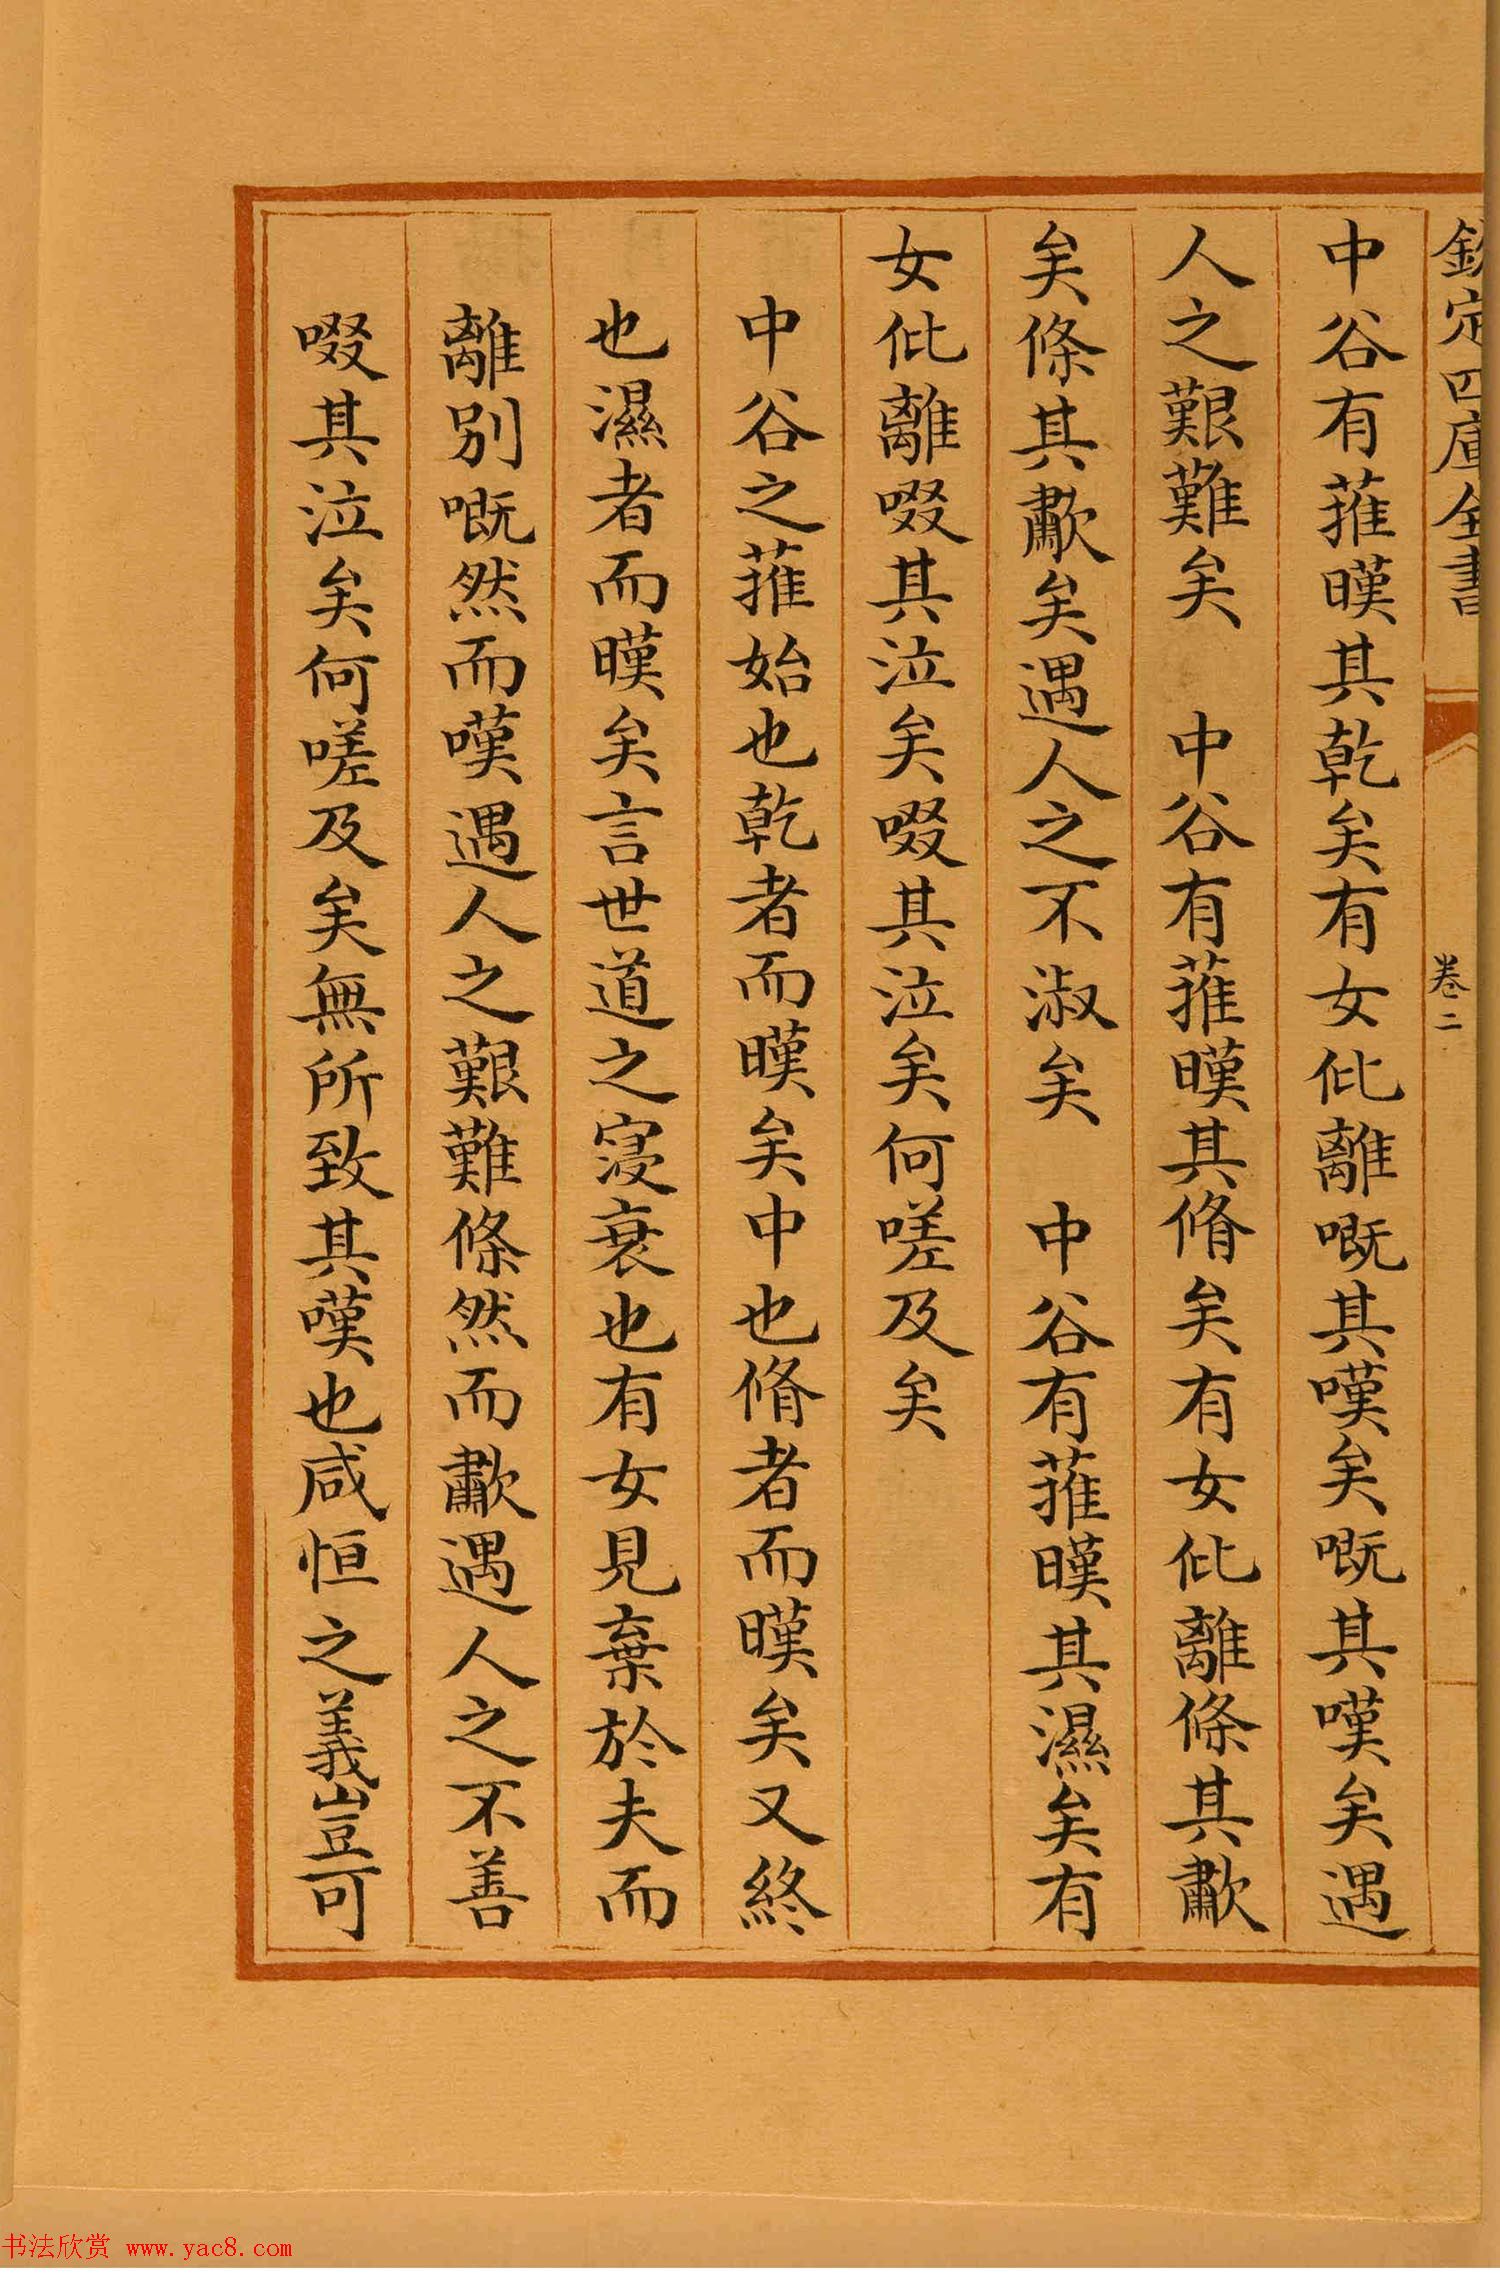 欽定四庫全書
卷二
中谷有蓷暵其乾矣有女仳離嘅其嘆矣嘅其嘆矣遇
人之艱難矣　中谷有蓷暵其脩矣有女仳離條其歗
矣條其歗矣遇人之不淑矣　中谷有蓷暵其濕矣有
女仳離啜其泣矣啜其泣矣何嗟及矣
中谷之蓷始也乾者而暵矣中也脩者而暵矣又終
也濕者而暵矣言世道之寖衰也有女見棄於夫而
離別嘅然而嘆遇人之艱難條然而歗遇人之不善
啜其泣矣何嗟及矣無所致其嘆也咸恒之義豈可
书法欣赏 www.yac8.com